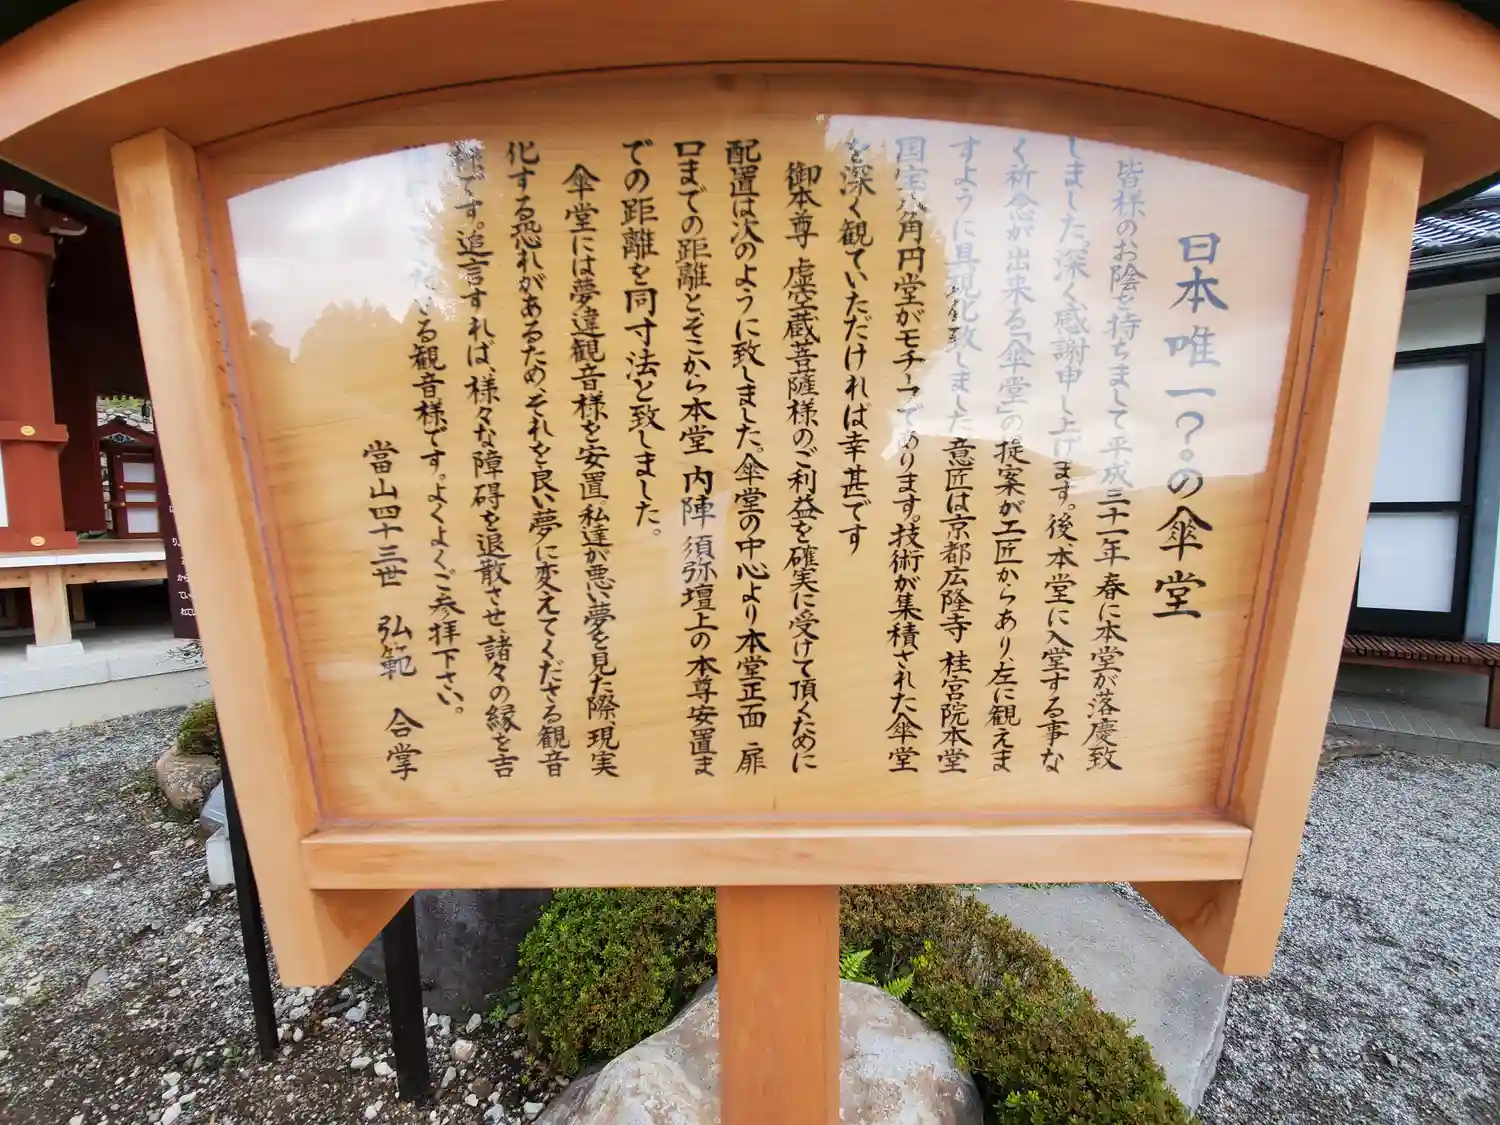 日本唯一?の傘堂
皆様のお陰を持ちまして平成三十一年春に本堂が落慶致
しました。深く感謝申し上げます。後、本堂に入堂する事な
く祈念が出来る「傘堂」の提案が工匠からあり、左に観えま
すように具現化致しました。意匠は京都広隆寺 桂宮院本堂
国宝八角円堂がモチーフであります。技術が集積された傘堂
を深く観ていただければ幸甚です
御本尊 虚空蔵菩薩様のご利益を確実に受けて頂くために
配置は次のように致しました。傘堂の中心より本堂正面 扉
口までの距離と、そこから本堂 内陣 須弥壇上の本尊安置ま
での距離を同寸法と致しました。
傘堂には夢違観音様を安置 私達が悪い夢を見た際、現実
化する恐れがあるため、それを良い夢に変えてくださる観音
様です。追言すれば、様々な障碍を退散させ、諸々の縁を吉
る観音様です。よくよくご参拝下さい。
當山四十三世 弘範 合掌
从
てい